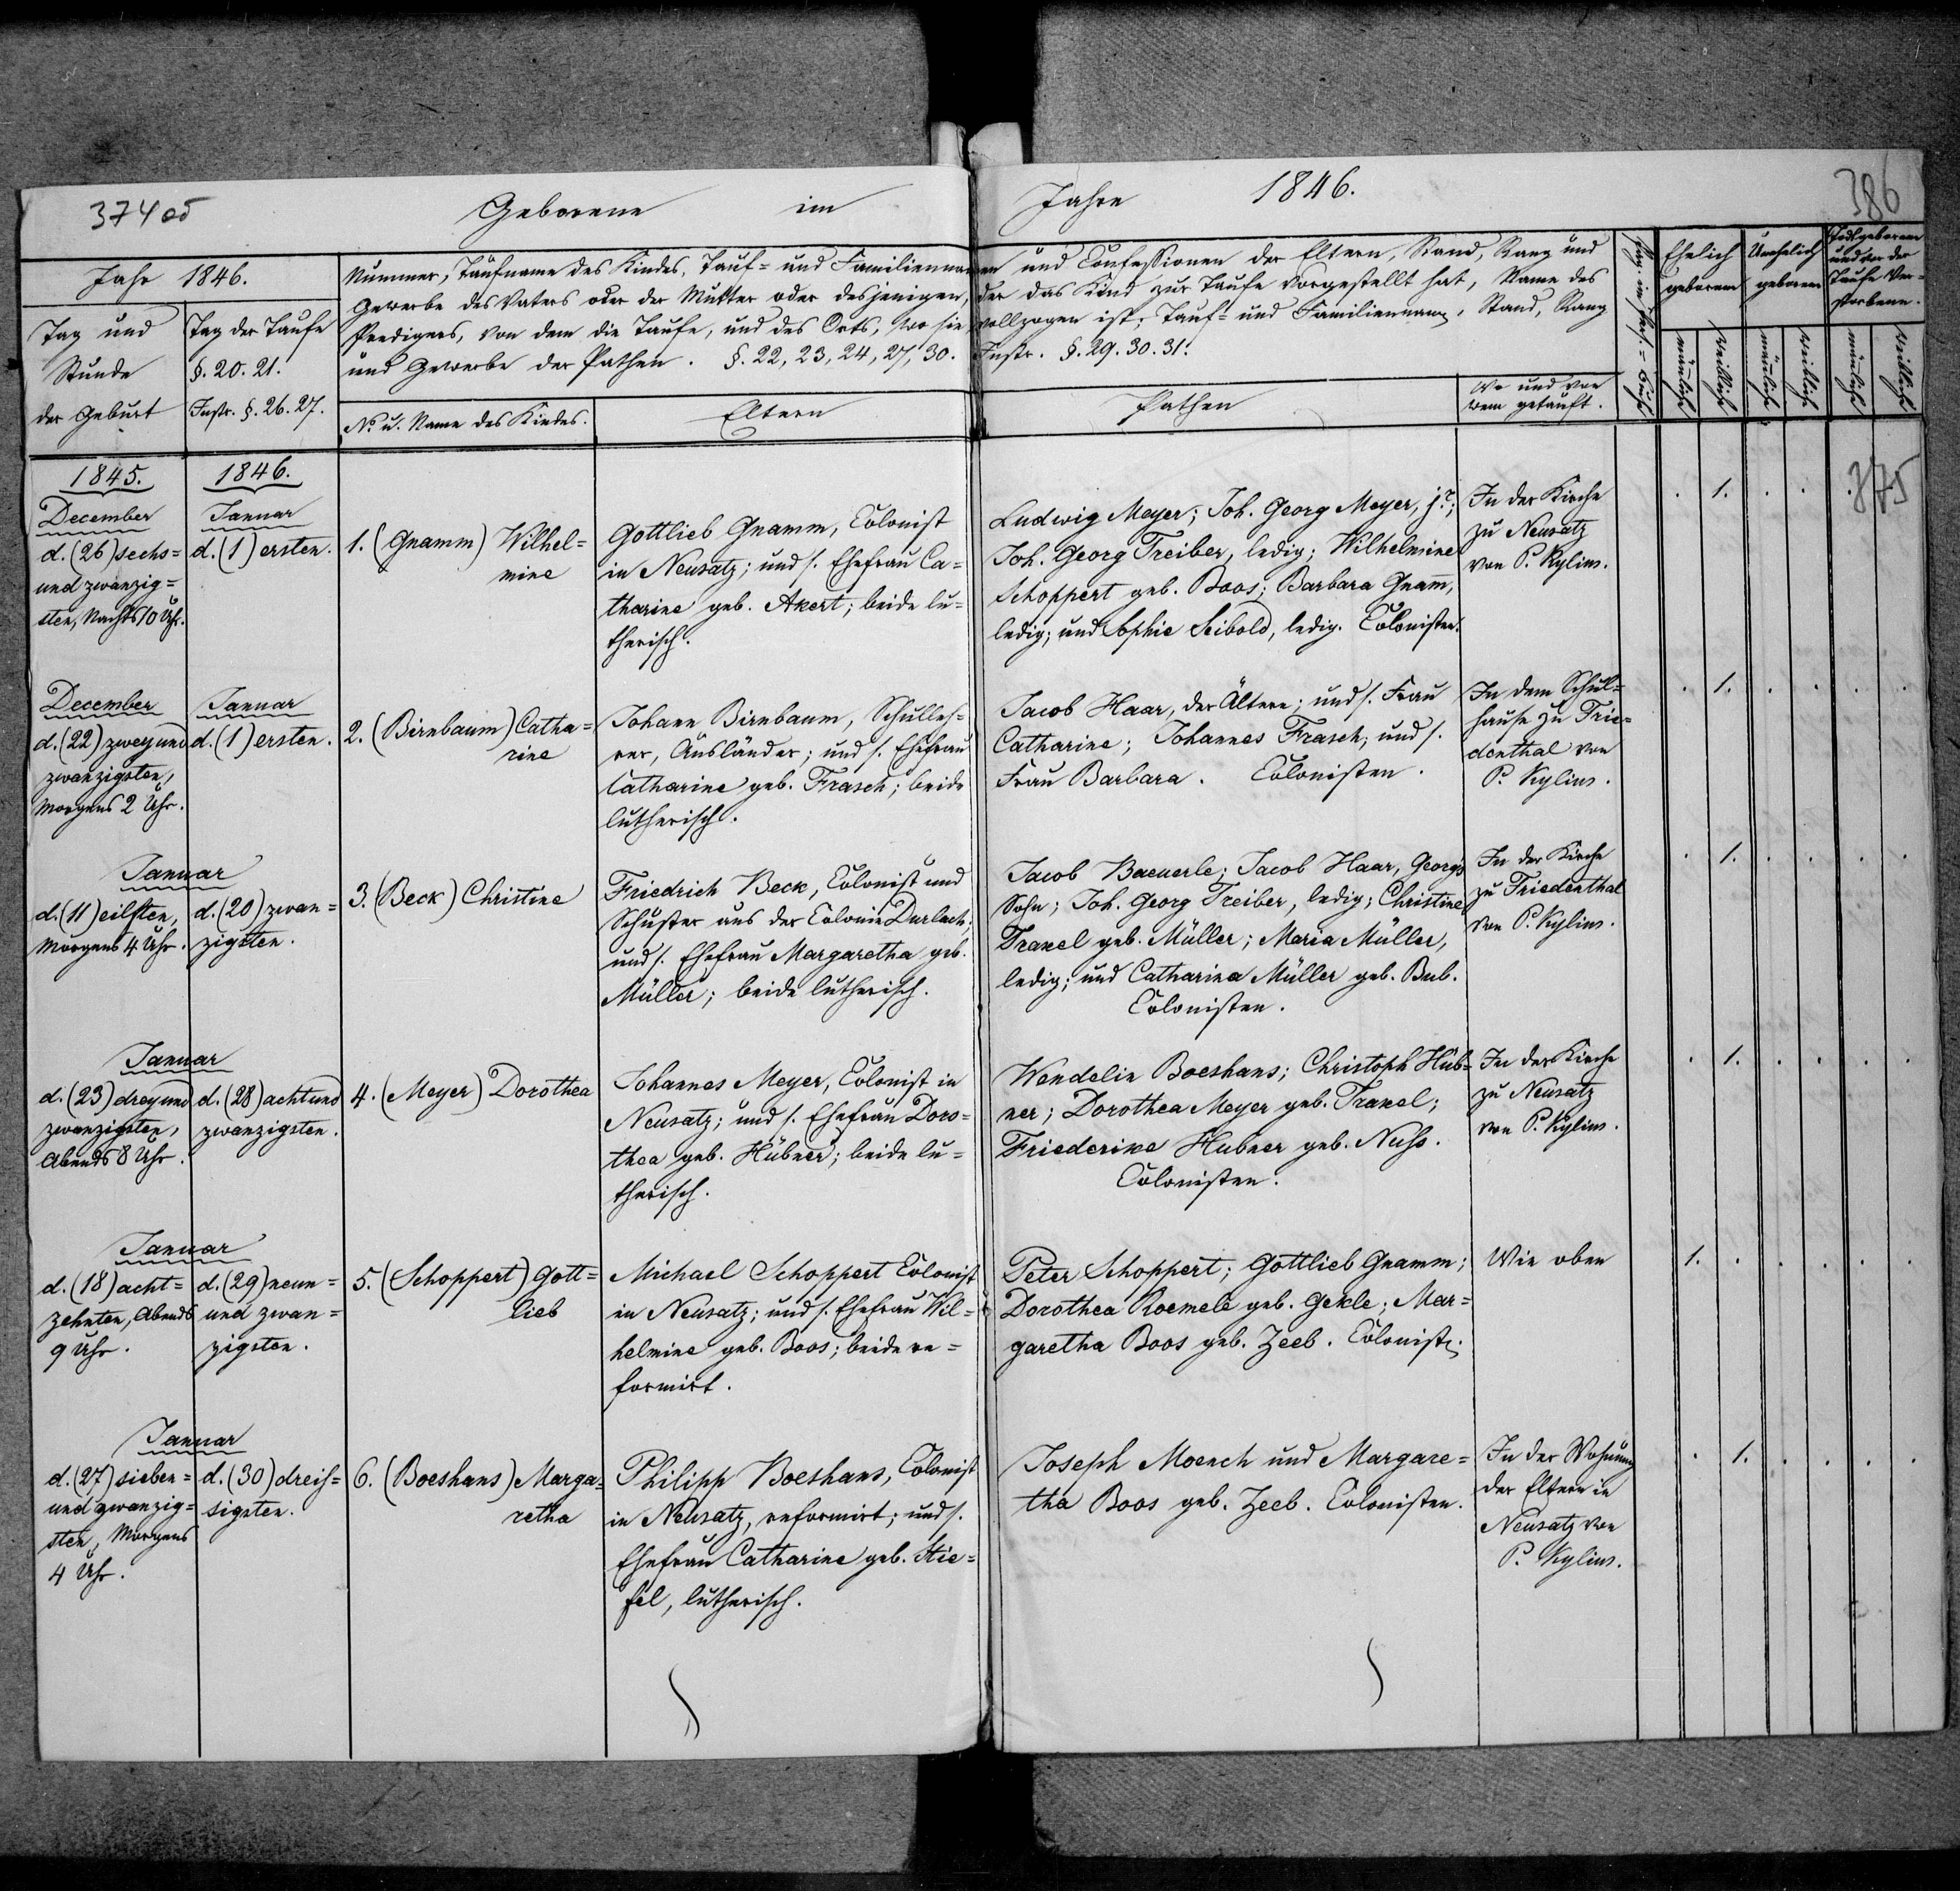 374 об
Geborene im Jahre 1846.
386
Jahr 1846.
Tag und
Stunde
der Geburt
Tag der Taufe
§. 20. 21.
Instr. §. 26. 27.
Nummer, Taufname des Kindes, Tauf= und Familiennamen und Confessionen der Eltern, Stand, Rang und
Gewerbe des Vaters oder der Mutter oder desjenigen, der das Kind zur Taufe vorgestellt hat, Name des
Predigers, von dem die Taufe, und des Orts, wo sie vollzogen ist; Tauf= und Familiennamen, Stand, Rang
und Gewerbe der Pathen. §. 22, 23, 24, 27, 30. Instr. §. 29. 30. 31.
No. u. Name des Kindes.
Eltern
Pathen
Wo und von
wem getauft.
Ehelich
geboren
Unehelich
geboren
Todtgeborene
und vor der
Taufe Ver=
storbene.
männliche
weibliche
männliche
weibliche
männliche
weibliche
1845.
December
d. (26) sechs=
und zwanzig=
sten, Nachts 10 Uhr.
1846.
Januar
d. (1) ersten.
1. (Gnamm) Wilhel=
mine
Gottlieb Gnamm, Colonist
in Neusatz; und s. Ehefrau Ca=
tharine geb. Akert; beide lu=
therisch.
Ludwig Meyer; Joh. Georg Meyer, jr.;
Joh. Georg Treiber, ledig; Wilhelmine
Schoppert geb. Boos; Barbara Gnam̄,
ledig; und Sophie Seibold, ledig. Colonisten.
In der Kirche
zu Neusatz
von P. Kylius.
. 1. . . .
375
December
d. (22) zwey und
zwanzigsten,
Morgens 2 Uhr.
Januar
d. (1) ersten.
2. (Birnbaum) Catha=
rine
Johann Birnbaum, Schulleh=
rer, Ausländer; und s. Ehefrau
Catharine geb. Frasch; beide
lutherisch.
Jacob Haar, der Ältere; und s. Frau
Catharine; Johannes Frasch; und s.
Frau Barbara. Colonisten.
In dem Schul=
hause zu Frie=
denthal von
P. Kylius.
. 1. . . . .
Januar
d. (11) eilften,
Morgens 4 Uhr.
d. (20) zwan=
zigsten.
3. (Beck) Christine
Friedrich Beck, Colonist und
Schuster aus der Colonie Durlach;
und s. Ehefrau Margaretha geb.
Müller; beide lutherisch.
Jacob Baeuerle; Jacob Haar, Georgs
Sohn; Joh. Georg Treiber, ledig; Christine
Traxel geb. Müller; Maria Müller,
ledig; und Catharina Müller geb. Bub.
Colonisten.
In der Kirche
zu Friedenthal
von P. Kylius.
. 1. . . . .
Januar
d. (23) drey und
zwanzigsten,
Abends 8 Uhr.
d. (28) acht und
zwanzigsten.
4. (Meyer) Dorothea
Johannes Meyer, Colonist in
Neusatz; und s. Ehefrau Doro=
thea geb. Hübner; beide lu=
therisch.
Wendelin Boeshans; Christoph Hüb=
ner; Dorothea Meyer geb. Traxel;
Friederike Hubner geb. Nuss.
Colonisten.
In der Kirche
zu Neusatz
von P. Kylius.
. 1. . . . .
Januar
d. (18) acht=
zehnten, Abends
9 Uhr.
d. (29) neun=
und zwan=
zigsten.
5. (Schoppert) Gott=
lieb
Michael Schoppert Colonist
in Neusatz; und s. Ehefrau Wil=
helmine geb. Boos; beide re=
formirt.
Peter Schoppert; Gottlieb Gnamm;
Dorothea Roemele geb. Gekle; Mar=
garetha Boos geb. Zeeb. Colonist.
Wie oben
1. . . . . .
Januar
d. (27) sieben=
und zwanzig=
sten, Morgens
4 Uhr.
d. (30) dreis=
sigsten.
6. (Boeshans) Marga=
retha
Philipp Boeshans, Colonist
in Neusatz, reformirt; und s.
Ehefrau Catharine geb. Stie=
fel, lutherisch.
Joseph Moench und Margare=
tha Boos geb. Zeeb. Colonisten.
In der Wohnung
der Eltern in
Neusatz von
P. Kylius.
. 1. . . . .